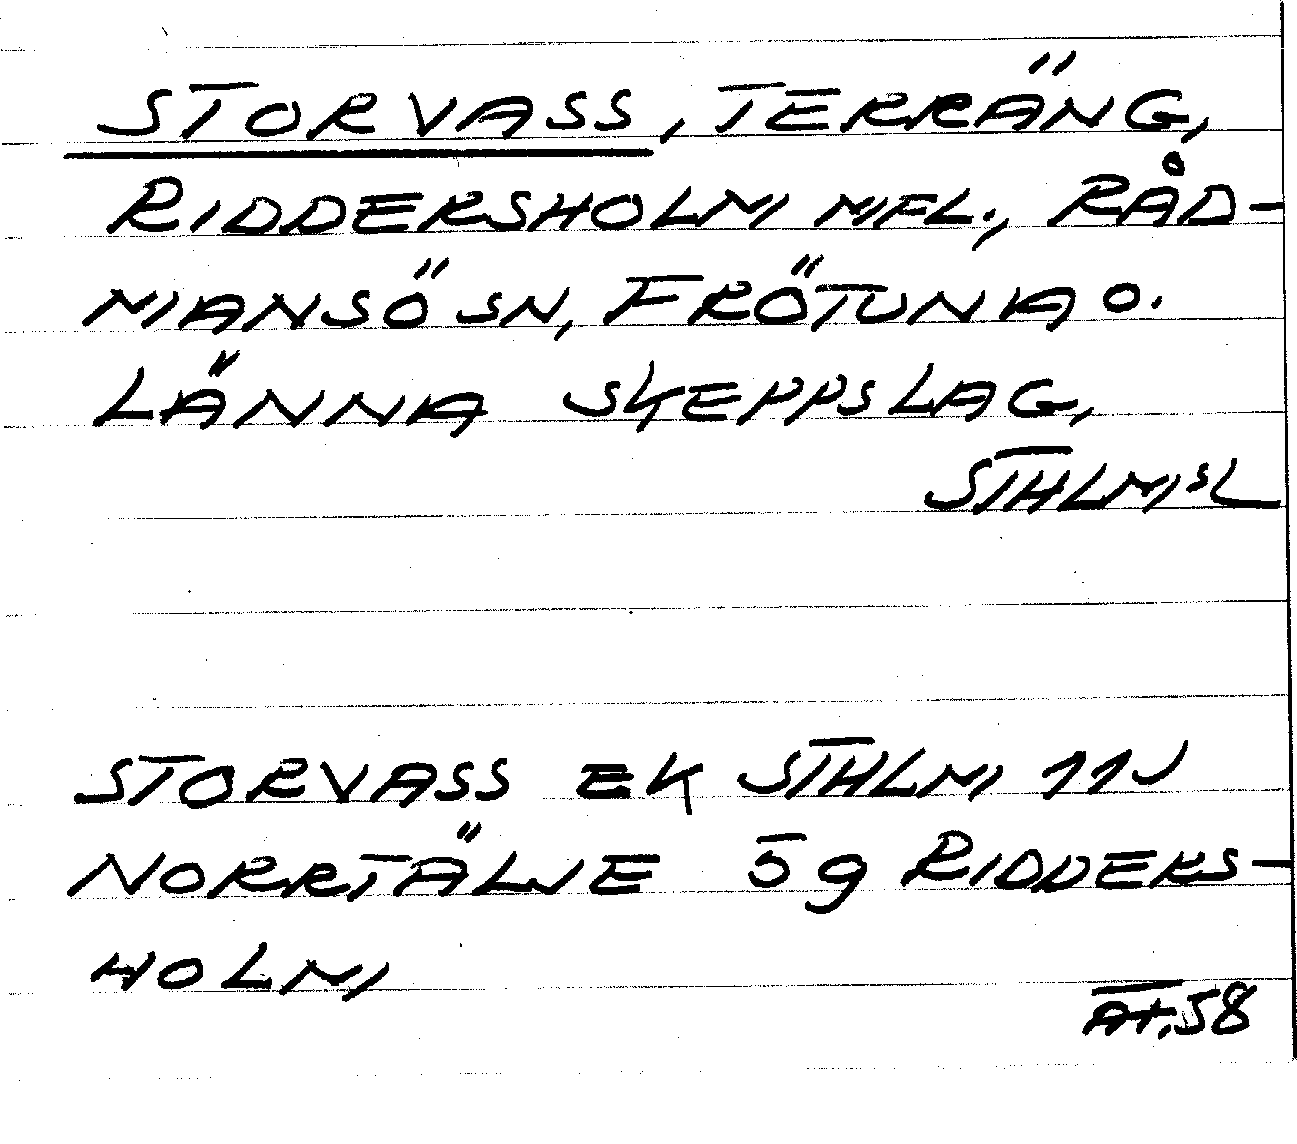 STORVASS, TERRÄNG,
RIDDERSHOLM M.FL., RÅD-
MANSÖ SN, FRÖTUNA O.
LÄNNA SKEPPSLAG,
STHLMSL
STORVASS EK STHLM 11J
NORRTÄLJE 5g RIDDERS-
HOLM
AT, 58